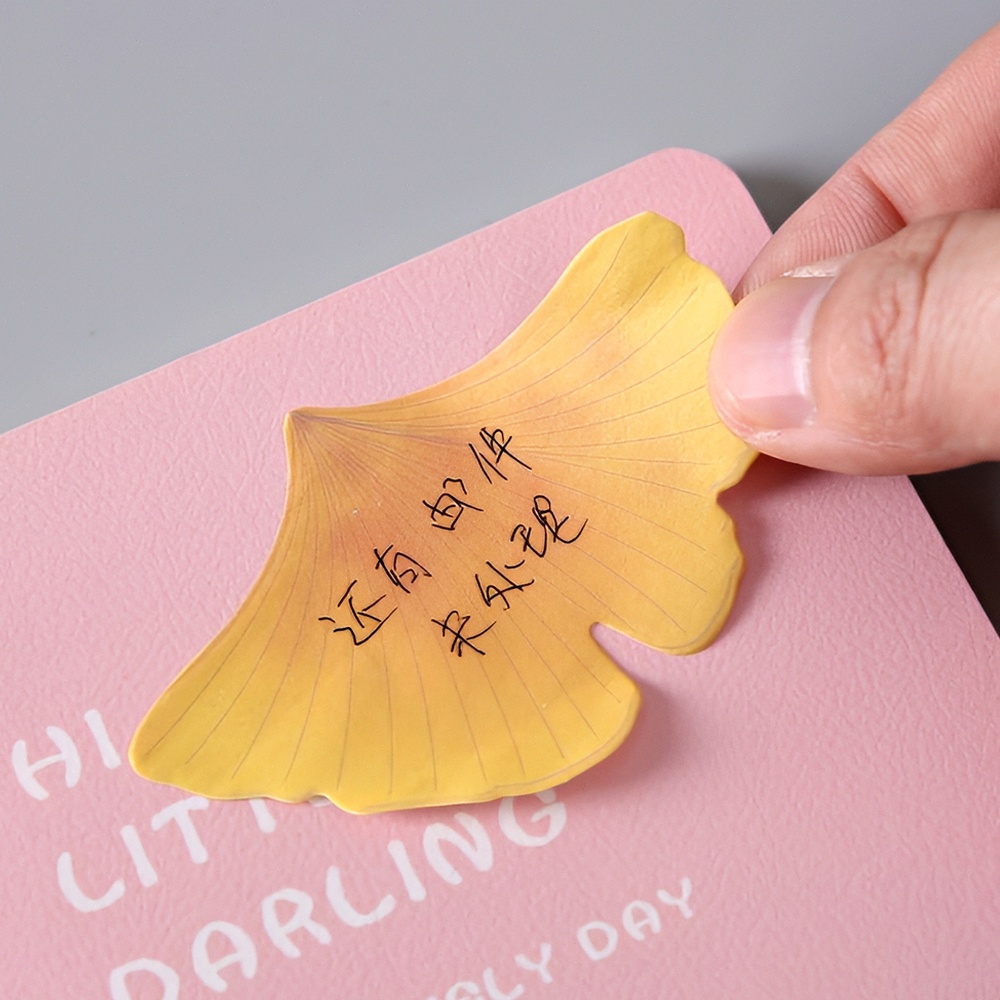 还有邮件
未处理
HI
LITT
DARLING
DAY